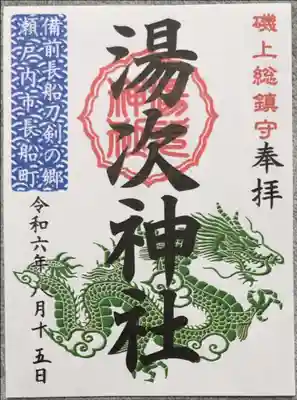 磯上総鎮守
奉拝
湯次神社
備前長船刀剣の郷
瀬戸内市長船町
令和六年 月十五日